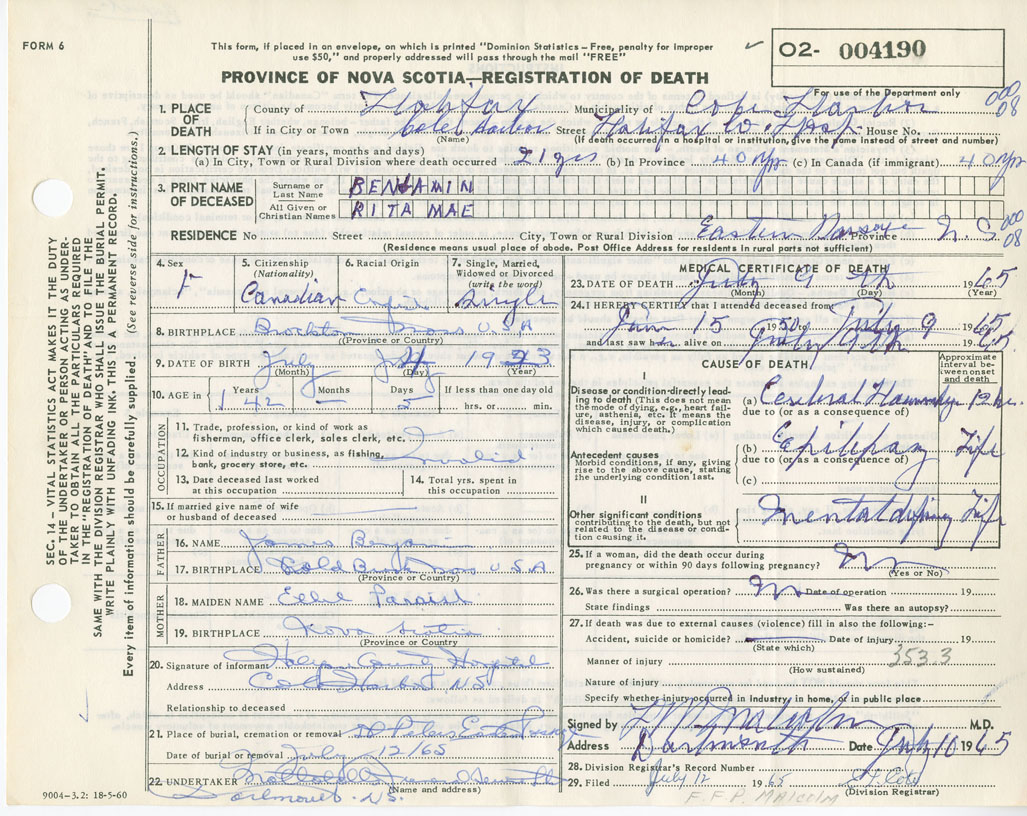 FORM 6
This form, if placed in an envelope, on which is printed "Dominion Statistics – Free, penalty for improper
use $50," and properly addressed will pass through the mail "FREE"
02- 004190
PROVINCE OF NOVA SCOTIA—REGISTRATION OF DEATH
For use of the Department only
1. PLACE OF DEATH
County of Halifax Municipality of Cole Harbor
000 08
If in City or Town Cole Harbor Street Halifax Co. Hosp House No.
(Name) (If death occurred in a hospital or institution, give the name instead of street and number)
2. LENGTH OF STAY (in years, months and days)
(a) In City, Town or Rural Division where death occurred (b) In Province 40 yrs (c) In Canada (if immigrant) 40 yrs
3. PRINT NAME OF DECEASED
Surname or Last Name BENJAMIN
All Given or Christian Names RITA MAE
RESIDENCE No. Street City, Town or Rural Division Eastern Passage Province N. S.
000 08
(Residence means usual place of abode. Post Office Address for residents in rural parts not sufficient)
4. Sex F
5. Citizenship (Nationality) Canadian
6. Racial Origin
7. Single, Married, Widowed or Divorced (write the word) Single
8. BIRTHPLACE Brockton Mass U.S.A
(Province or Country)
9. DATE OF BIRTH July 4 1923
(Month) (Day) (Year)
10. AGE in Years 42 Months — Days 5 If less than one day old hrs. or min.
OCCUPATION
11. Trade, profession, or kind of work as fisherman, office clerk, sales clerk, etc.
12. Kind of industry or business, as fishing, bank, grocery store, etc. Invalid
13. Date deceased last worked at this occupation
14. Total yrs. spent in this occupation
15. If married give name of wife or husband of deceased
FATHER
16. NAME James Benjamin
17. BIRTHPLACE Mass U.S.A
(Province or Country)
MOTHER
18. MAIDEN NAME
19. BIRTHPLACE Nova Scotia
(Province or Country)
20. Signature of informant Halifax County Hospital
Address Cole Harbor N.S.
Relationship to deceased
21. Place of burial, cremation or removal St Peters East Passage
Date of burial or removal July 12/65
22. UNDERTAKER
(Name and address)
Dartmouth N.S.
9004-3.2: 18-5-60
MEDICAL CERTIFICATE OF DEATH
23. DATE OF DEATH July 9 th 1965
(Month) (Day) (Year)
24. I HEREBY CERTIFY that I attended deceased from
Jan 15 1950 to July 9 1965
and last saw h alive on July 9th 1965
CAUSE OF DEATH
Approximate interval between onset and death
I
Disease or condition directly leading to death (This does not mean the mode of dying, e.g., heart failure, asthenia, etc. It means the disease, injury, or complication which caused death.)
(a) Cerebral Hemorrhage 12 hr.
due to (or as a consequence of)
Antecedent causes
Morbid conditions, if any, giving rise to the above cause, stating the underlying condition last.
(b) Epilepsy Life
due to (or as a consequence of)
(c)
II
Other significant conditions contributing to the death, but not related to the disease or condition causing it.
Mental Life
25. If a woman, did the death occur during pregnancy or within 90 days following pregnancy? No
(Yes or No)
26. Was there a surgical operation? No Date of operation 19
State findings Was there an autopsy?
27. If death was due to external causes (violence) fill in also the following:–
Accident, suicide or homicide? Date of injury 19
(State which)
353.3
Manner of injury
(How sustained)
Nature of injury
Specify whether injury occurred in industry in home, or in public place
Signed by F M Malcolm M.D.
Address Dartmouth Date July 10 1965
28. Division Registrar's Record Number
29. Filed July 12 1965
(Division Registrar)
F. F. P. MALCOLM
SEC. 14 – VITAL STATISTICS ACT MAKES IT THE DUTY
OF THE UNDERTAKER OR PERSON ACTING AS UNDER-
TAKER TO OBTAIN ALL THE PARTICULARS REQUIRED
IN THE "REGISTRATION OF DEATH" AND TO FILE THE
SAME WITH THE DIVISION REGISTRAR WHO SHALL ISSUE THE BURIAL PERMIT.
WRITE PLAINLY WITH UNFADING INK. THIS IS A PERMANENT RECORD.
Every item of information should be carefully supplied. (See reverse side for instructions.)